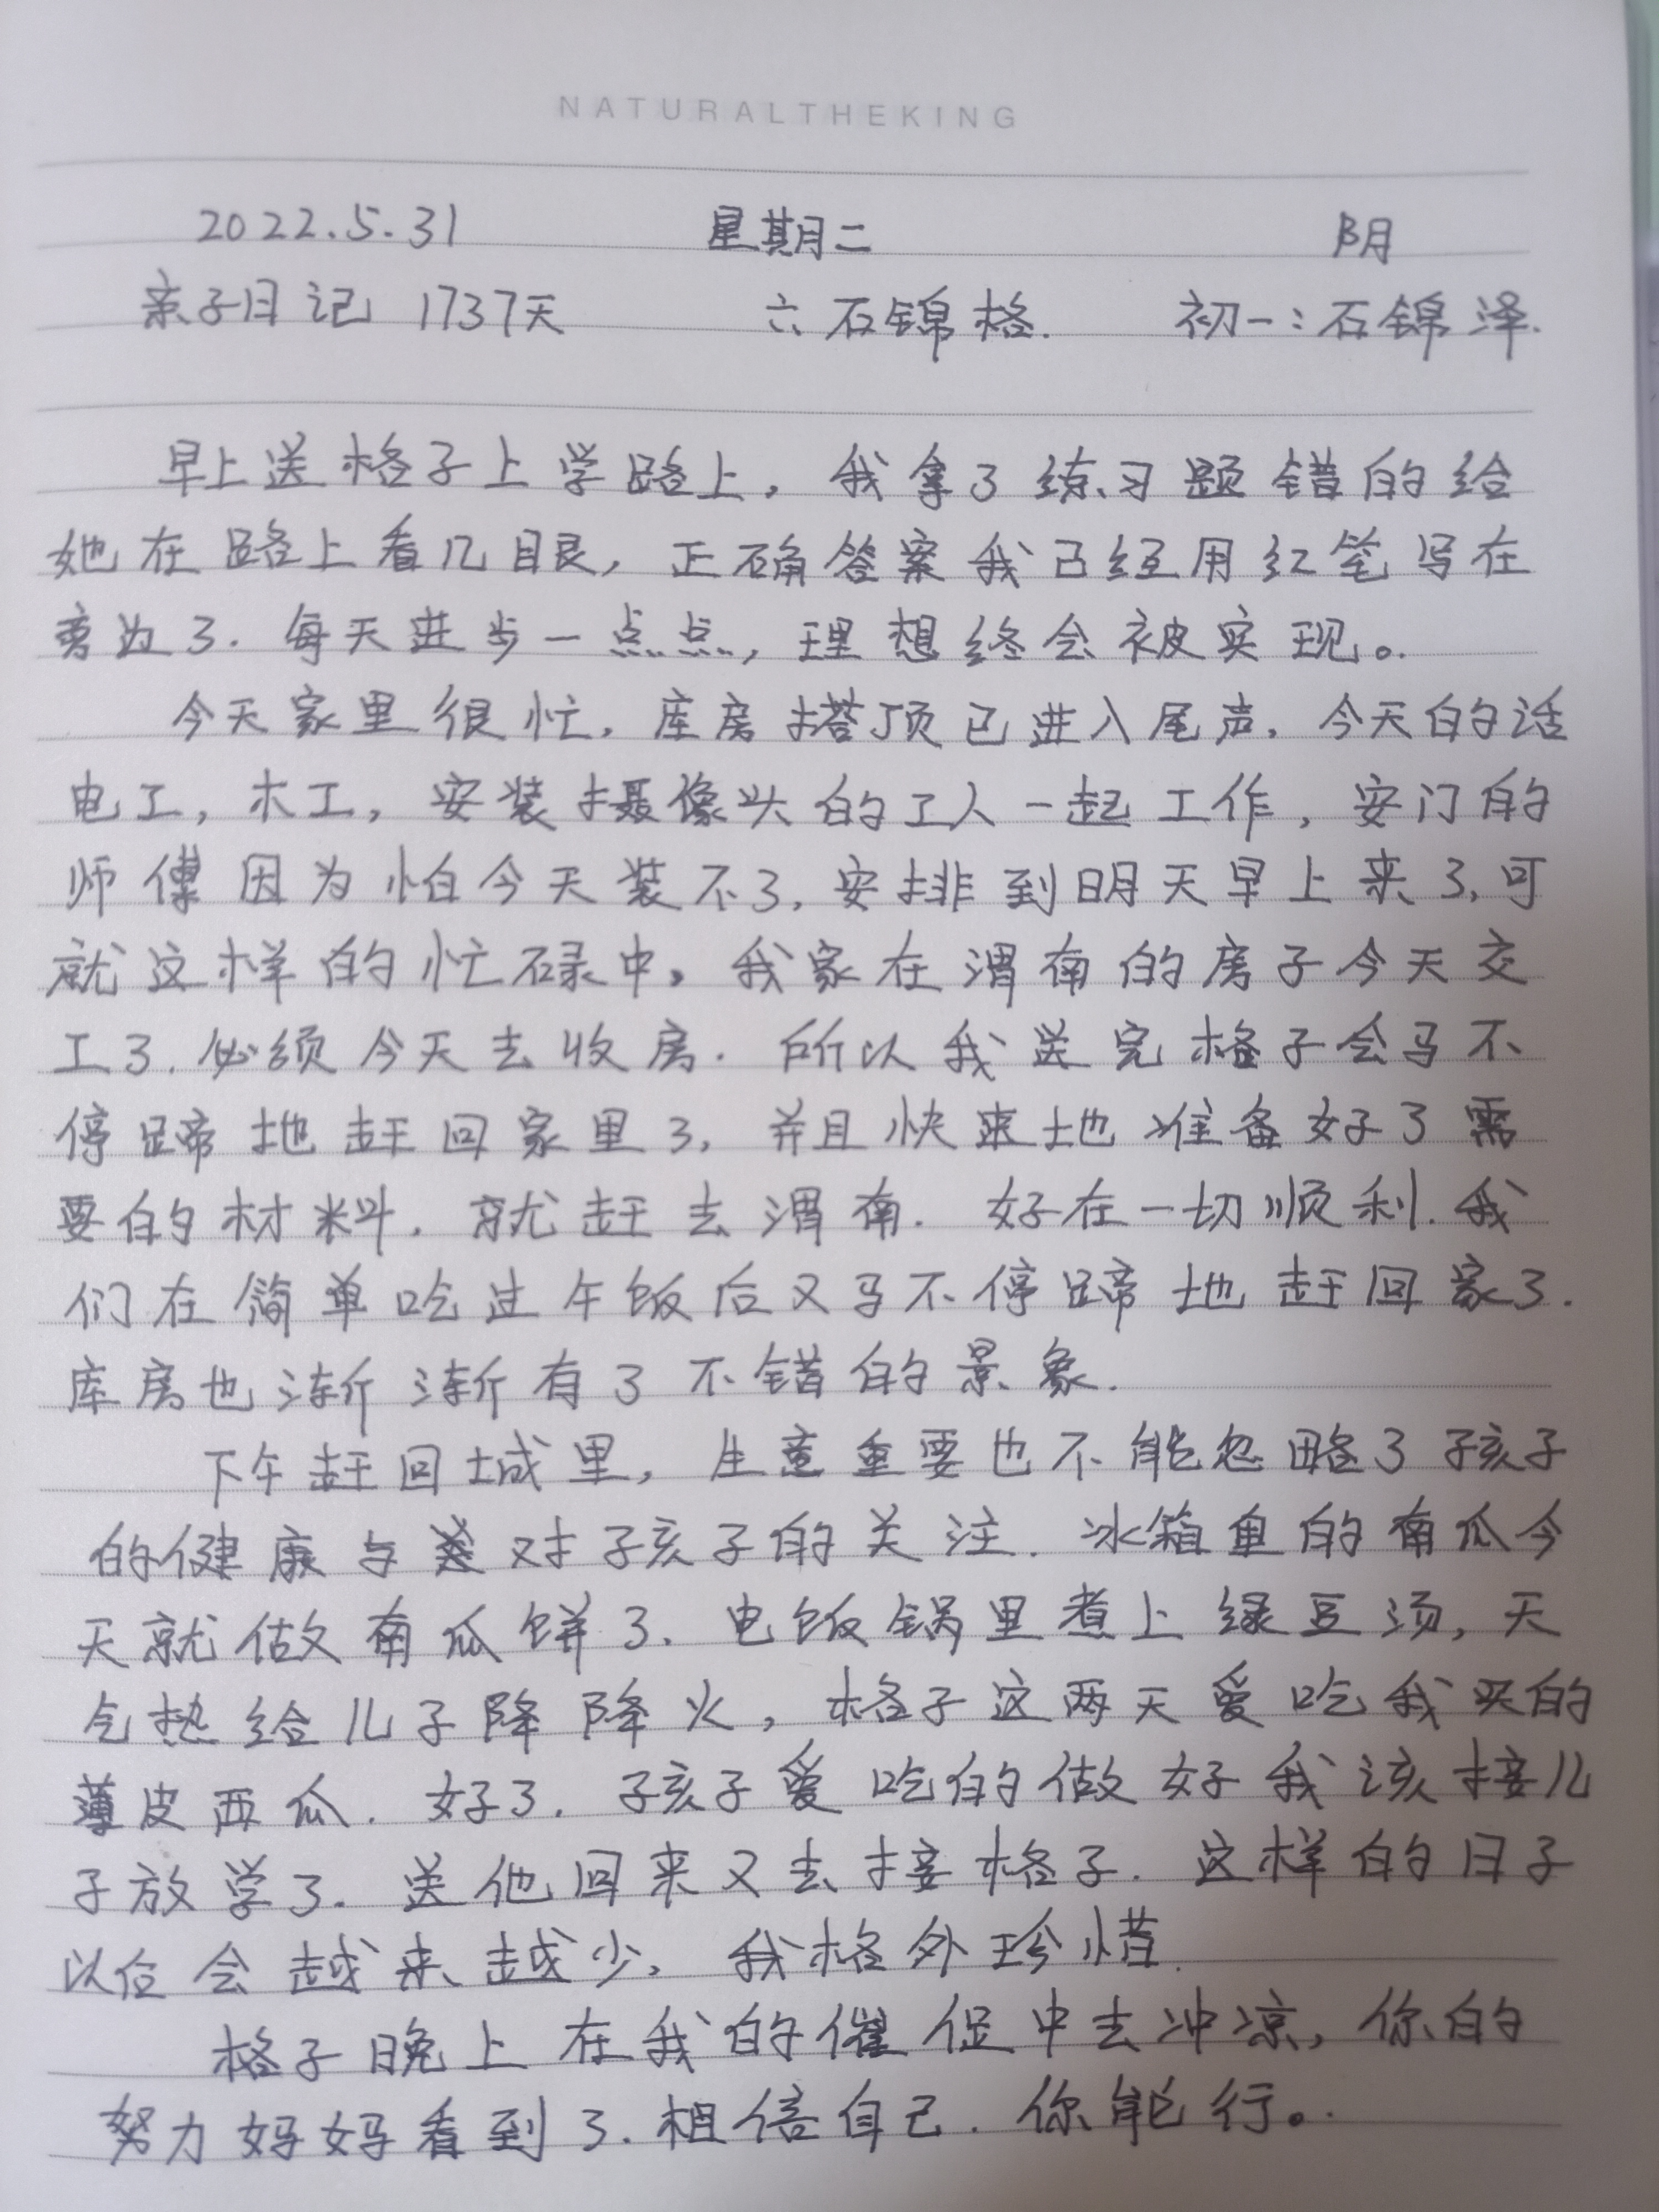 NATURALTHEKING
2022.5.31 星期二 阴
亲子日记 1737天 六:石锦格. 初一:石锦泽.
早上送格子上学路上，我拿了练习题错的给
她在路上看几眼，正确答案我已经用红笔写在
旁边了.每天进步一点点，理想终会被实现。
今天家里很忙，库房搭顶已进入尾声，今天的话
电工，木工，安装摄像头的工人一起工作，安门的
师傅因为怕今天装不了，安排到明天早上来了,可
就这样的忙碌中，我家在渭南的房子今天交
工了.必须今天去收房.所以我送完格子会马不
停蹄地赶回家里了，并且快速地准备好了需
要的材料.就赶去渭南.好在一切顺利.我
们在简单吃过午饭后又马不停蹄地赶回家了.
库房也渐渐有了不错的景象.
下午赶回城里，生意重要也不能忽略了孩子
的健康与对孩子的关注.冰箱里的南瓜今
天就做南瓜饼了.电饭锅里煮上绿豆汤，天
气热给儿子降降火，格子这两天爱吃我买的
薄皮西瓜.好了.孩子爱吃的做好我该接儿
子放学了.送他回来又去接格子.这样的日子
以后会越来越少，我格外珍惜.
格子晚上在我的催促中去冲凉，你的
努力妈妈看到了.相信自己.你能行。